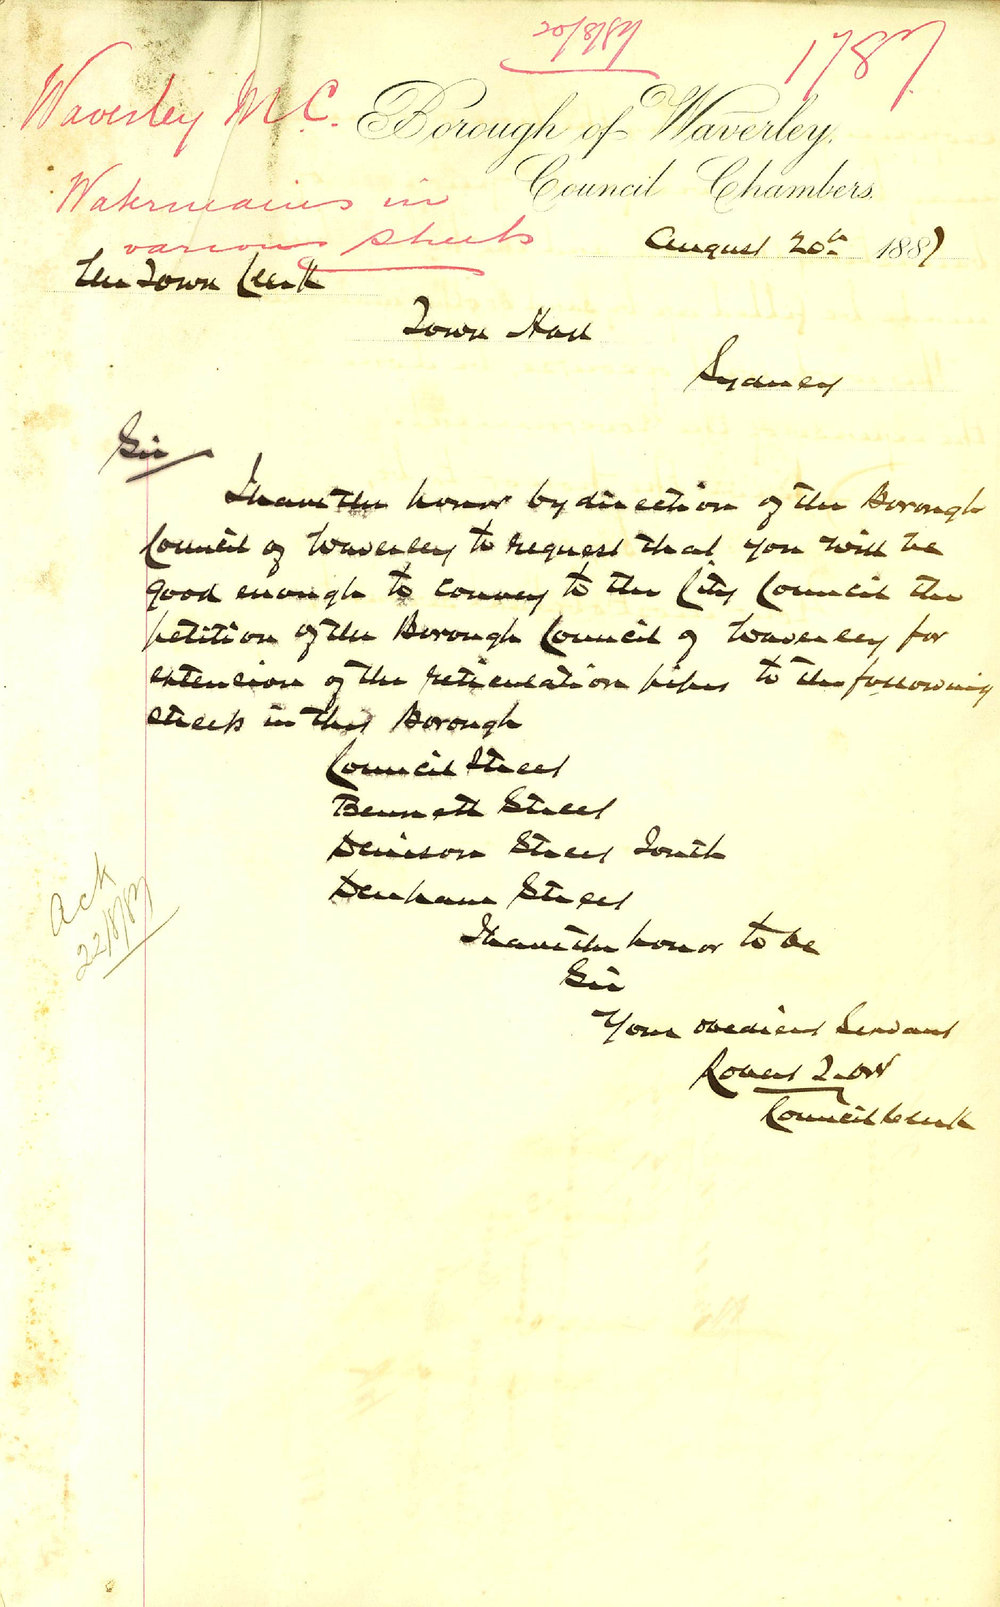 20/8/87
1787
Waverley M.C.
Borough of Waverley.
Council Chambers.
Watermains in
various streets
August 20th 1887
The Town Clerk
Town Hall
Sydney
Sir
I have the honor by direction of the Borough
Council of Waverley to request that you will be
good enough to convey to the City Council the
petition of the Borough Council of Waverley for
extension of the reticulation pipes to the following
streets in this Borough
Council Street
Bennett Street
Denison Street South
Denham Street
Ack
22/8/87
I have the honor to be
Sir
Your obedient Servant
Robert T. Orr
Council Clerk